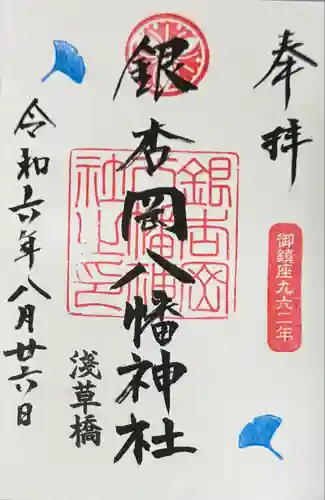 奉拝
御鎮座九六二年
銀杏岡八幡神社
銀杏岡
八幡神
社之印
浅草橋
令和六年八月廿六日